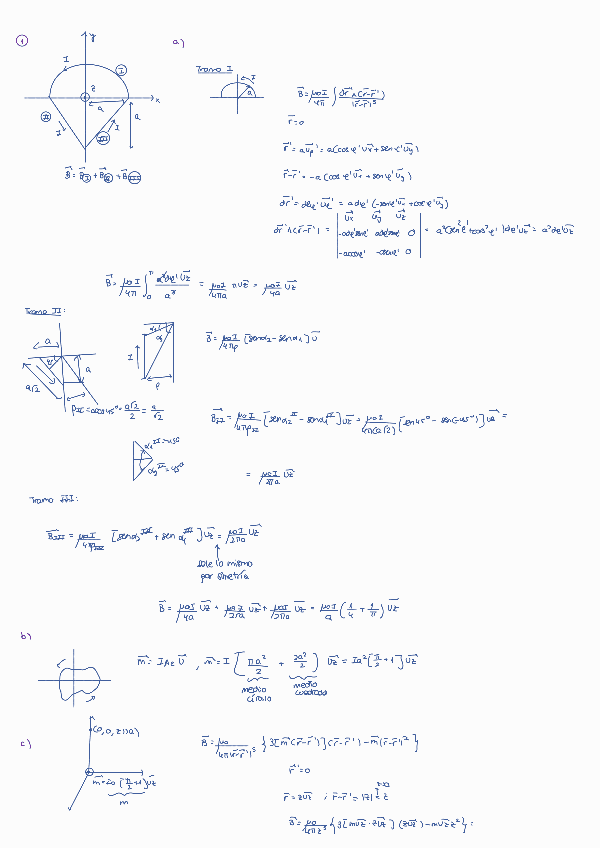 1
y
I
I
a)
Tramo I
I
a
z
x
a
a
II
I
I
III
B = B_I + B_II + B_III
B = μ0 I/4π ∫ dr' ∧ (r-r')/|r-r'|³
r = 0
r' = a u_ρ' = a (cosφ' ux + senφ' uy)
r-r' = -a (cosφ' ux + senφ' uy)
dr' = a dφ' (-senφ' ux + cosφ' uy)
ux uy uz
dr' ∧ (r-r') = = a² (sen²φ' + cos²φ') dφ' uz = a² dφ' uz
B = μ0 I/4π ∫₀^π a² dφ' uz / a³ = μ0 I/4πa π uz = μ0 I/4a uz
Tramo II:
a
a
a√2
I
α2
ρ
B = μ0 I/4πρ [senα2 - senα1] u
ρII = a cos 45° = a√2/2 = a/√2
B_II = μ0 I/4πρ_II [senα2^II - senα1^II] uz =
= μ0 I/2πa uz
Tramo III:
B_III = μ0 I/4πρ_III [senα2^III + senα1^III] uz = μ0 I/2πa uz
Sale lo mismo
por simetría
B = μ0 I/4a uz + μ0 I/2πa uz + μ0 I/2πa uz = μ0 I/a (1/4 + 1/π) uz
b)
m = I A u, m = I [πa²/2 + 2a²/2] uz = I a² [π/2 + 1] uz
medio
círculo
medio
cuadrado
c)
(0, 0, z>>a)
m
B = μ0/4π|r-r'|⁵ {3[m (r-r')] (r-r') - m |r-r'|²}
r' = 0
r = z uz ; r-r' = |z| = z
z>0
B = μ0/4πz⁵ {3[m uz · z uz] (z uz) - m uz z²} =